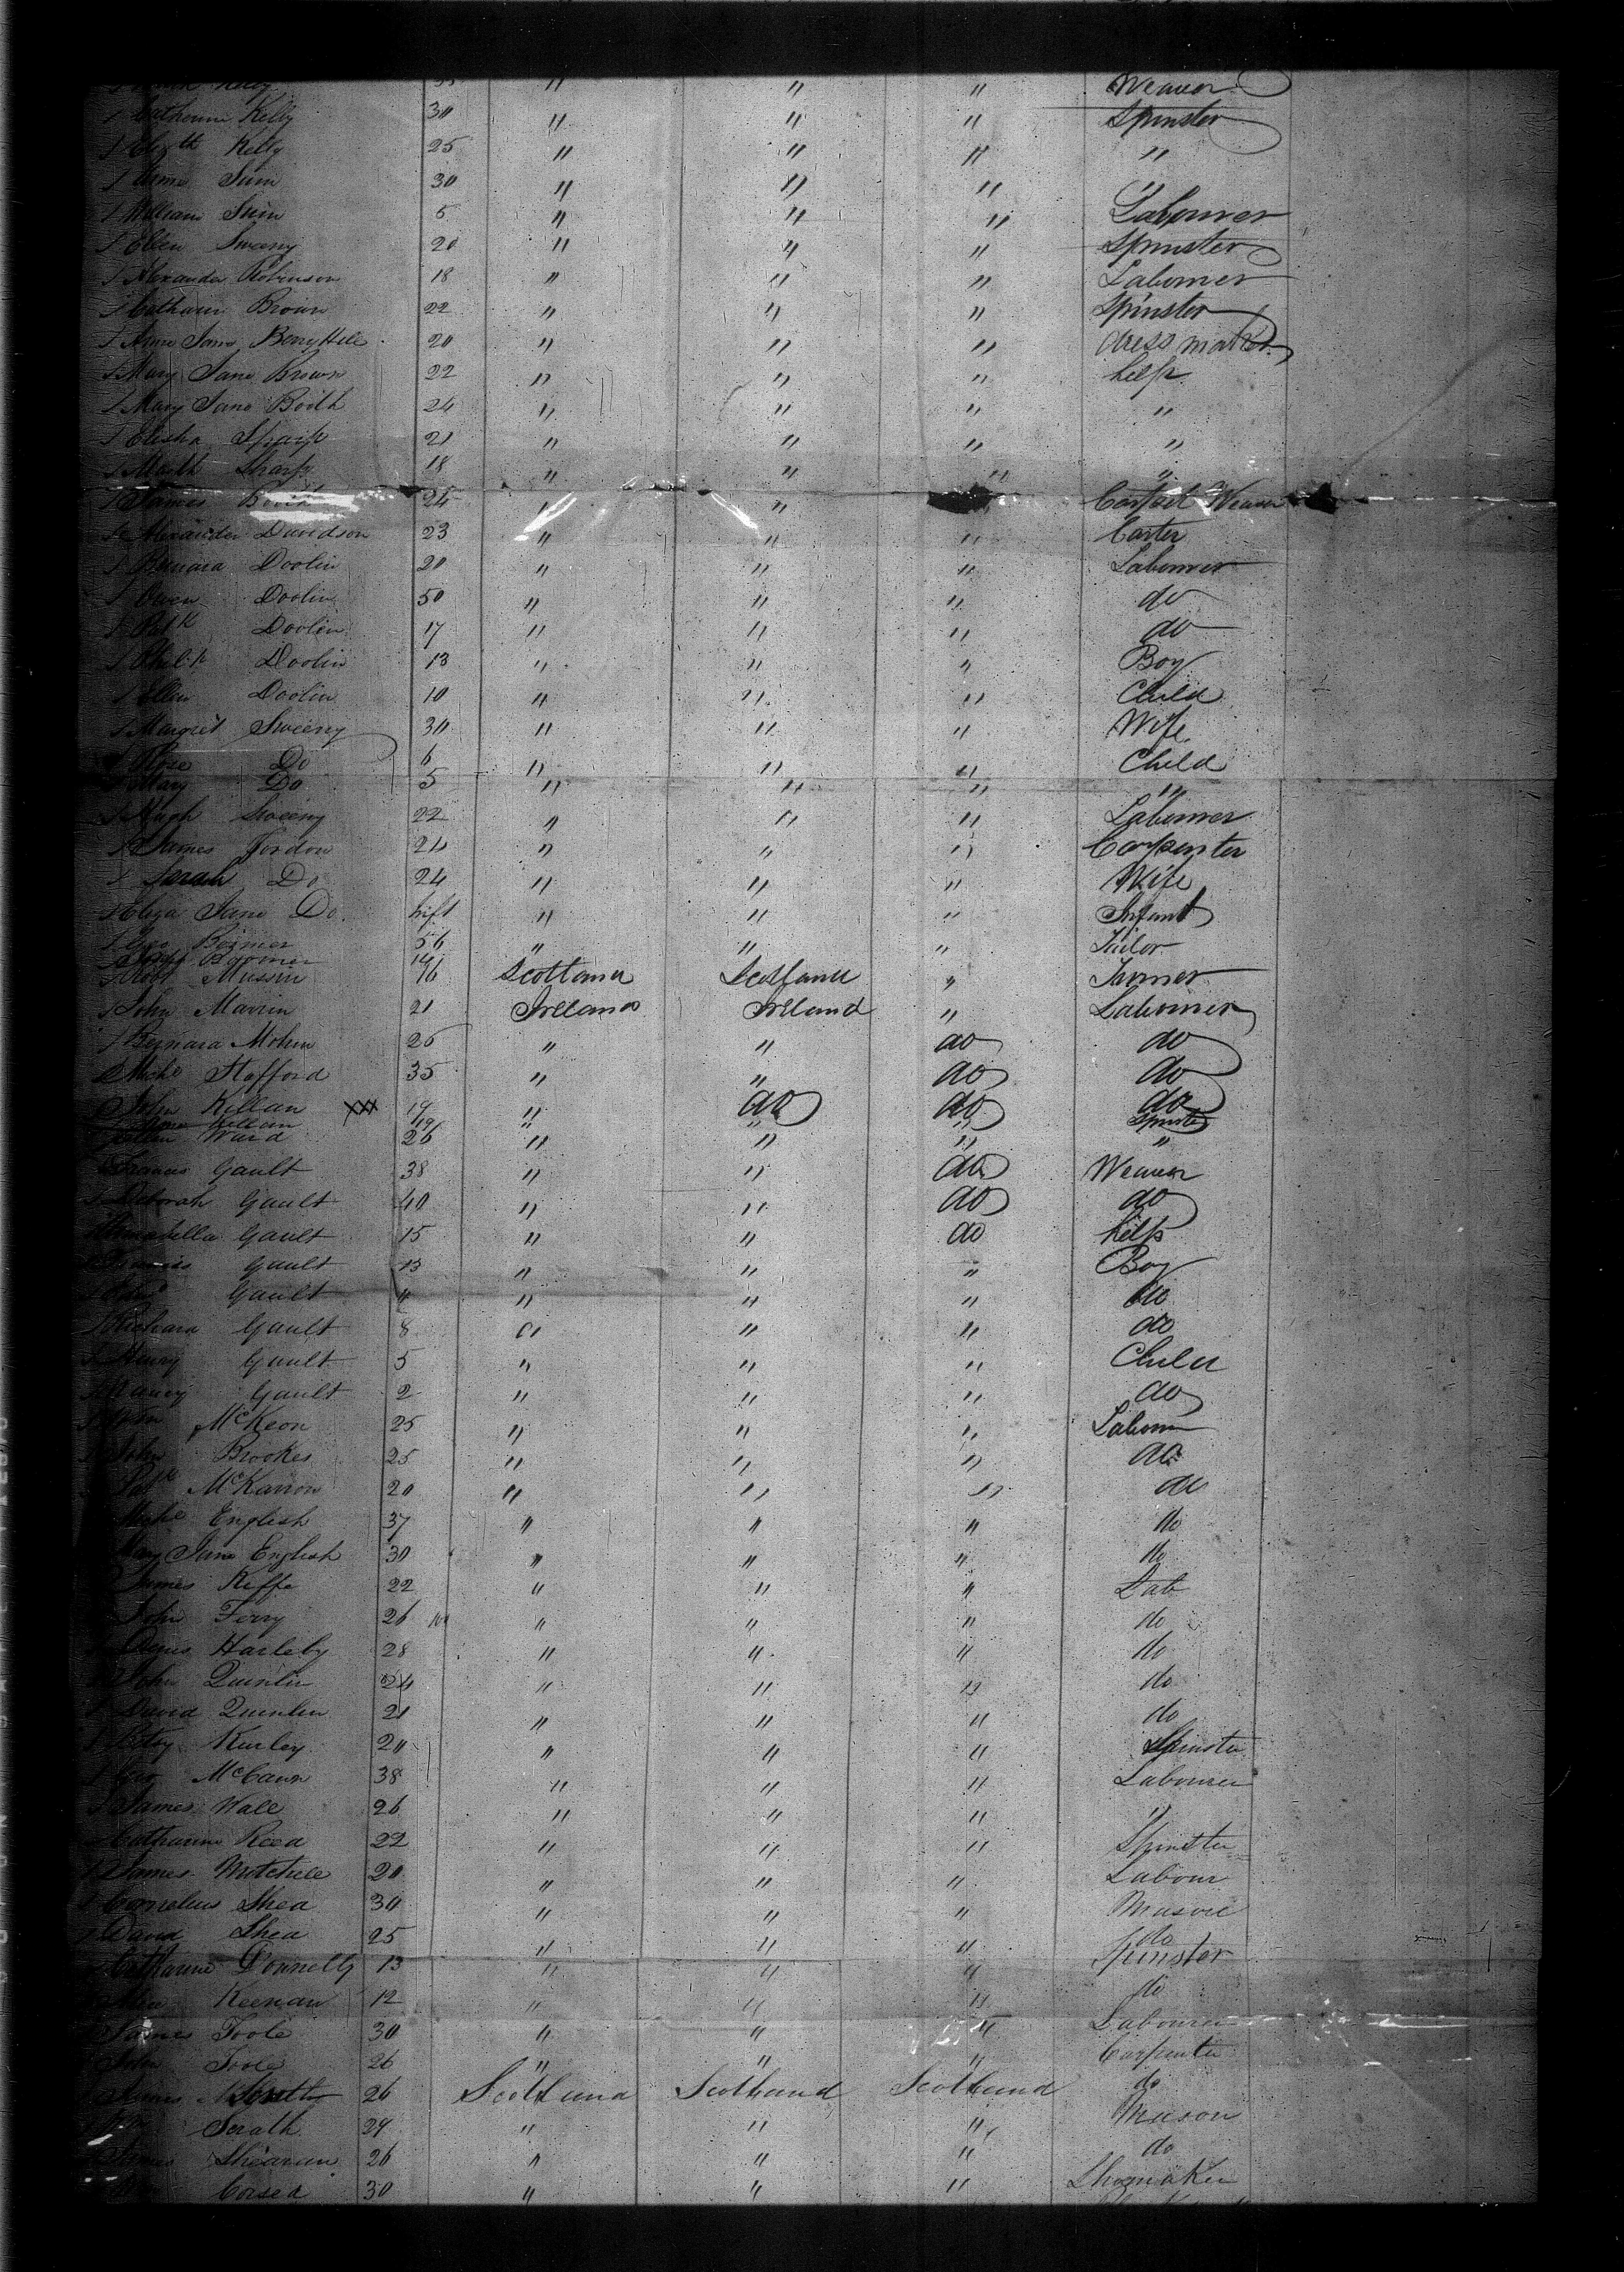 Kelly 35 " " " Weaver
Catherine Kelly 30 " " " Spinster
Elizth Kelly 25 " " " "
30 " " " "
William 5 " " " Labourer
Ellen Sweeny 20 " " " Spinster
Alexander Robinson 18 " " " Labourer
Catharin Brown 22 " " " Spinster
Anne Jane Berry Hill 20 " " " dress maker
Mary Jane Brown 22 " " " help
Mary Jane Booth 24 " " " "
Elisha Sharp 21 " " " "
Sharp 18 " " " "
James 24 " " Carpet Weaver
Alexander Davidson 23 " " " Carter
Bernard Doolin 20 " " " Labourer
Owen Doolin 50 " " " do
Patk Doolin 17 " " " do
Philip Doolin 13 " " " Boy
Ellen Doolin 10 " " " Child
Margret Sweeny 30 " " " Wife
Rose Do 6 " " " Child
Mary Do 5 " " " "
Hugh Sweeny 22 " " " Labourer
James Jordon 26 " " " Carpenter
Sarah Do 24 " " " Wife
Eliza Jane Do. inft " " " Infant
Geo 56 " " " Tailor
Robt 76 Scotland Scotland " Turner
John 21 Ireland Ireland " Labourer
Bernard 26 " " do do
Michl Stafford 35 " " do do
John Killan XXX 19 " do do do
Killan 19 " " Spinster
Ellen Ward 26 " " " "
Francis Gault 38 " " do Weaver
Deborah Gault 40 " " do do
Annabella Gault 15 " " do help
Francis Gault 13 " " " Boy
Gault " " " do
Richard Gault 8 " " " do
Henry Gault 5 " " " Child
Nancy Gault 2 " " " do
McKeon 25 " " " Labour
John Brookes 25 " " " do
Patk McKarron 20 " " " do
Michl English 37 " " " do
Mary Jane English 30 " " " do
James Keffe 22 " " " Lab
John Ferry 26 " " " do
Denis Harleby 28 " " " do
John Quinlin 24 " " " do
David Quinlin 21 " " " do
Betsy Kurley 20 " " " Spinster
Geo McCann 38 " " " Labourer
James Wall 26 " " " "
Catharine Reed 22 " " " Spinster
James Mitchell 20 " " " Labour
Cornelius Shea 30 " " " Mason
David Shea 25 " " " do
Catharine Donnelly 13 " " " Spinster
Keenan 12 " " " do
James Toole 30 " " " Labourer
John Toole 26 " " " Carpenter
James 26 Scotland Scotland Scotland do
29 " " " Mason
James Shearan 26 " " " do
30 " " " Shoemaker